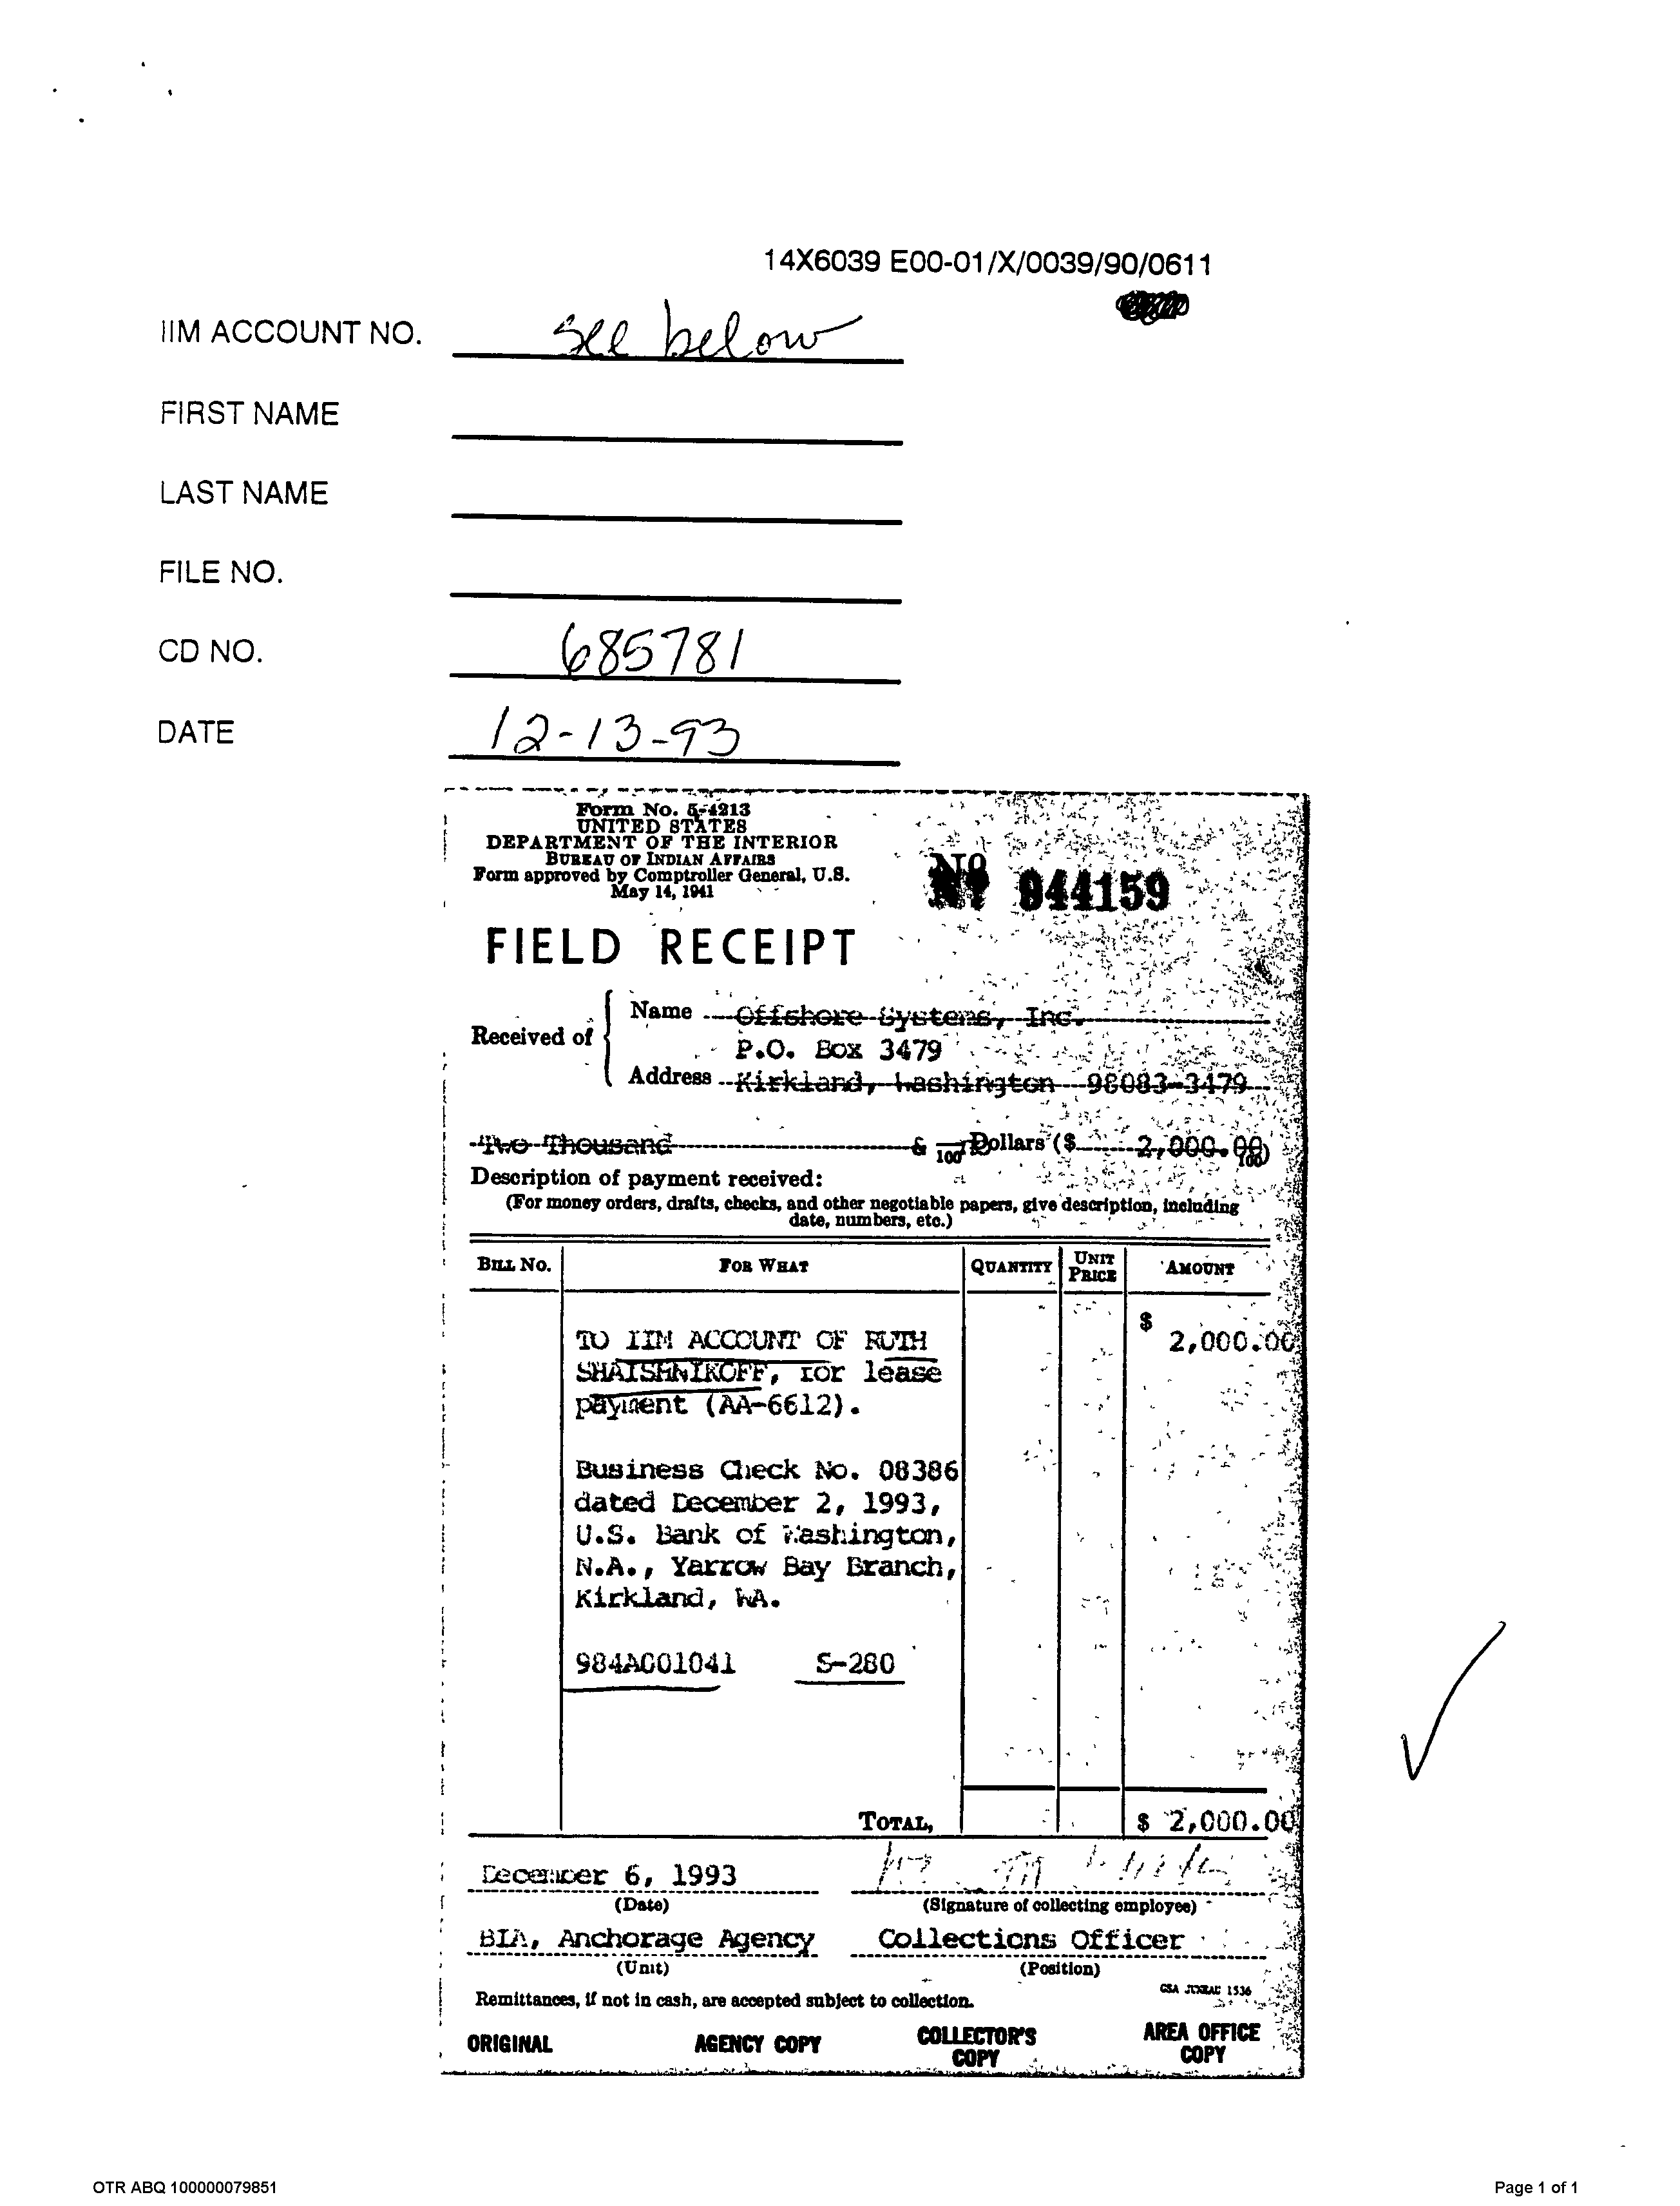 14X6039 E00-01/X/0039/90/0611
IIM ACCOUNT NO. see below
FIRST NAME
LAST NAME
FILE NO.
CD NO. 685781
DATE 12-13-93
Form No. 5-4213
UNITED STATES
DEPARTMENT OF THE INTERIOR
BUREAU OF INDIAN AFFAIRS
Form approved by Comptroller General, U.S.
May 14, 1941
No 944159
FIELD RECEIPT
Received of
Name Offshore Systems, Inc.
P.O. Box 3479
Address Kirkland, Washington 98083-3479
Two Thousand & /100 Dollars ($ 2,000.00/100)
Description of payment received:
(For money orders, drafts, checks, and other negotiable papers, give description, including
date, numbers, etc.)
BILL NO. FOR WHAT QUANTITY UNIT PRICE AMOUNT
TO IIM ACCOUNT OF RUTH $ 2,000.00
SHAISHNIKOFF, for lease
payment (AA-6612).
Business Check No. 08386
dated December 2, 1993,
U.S. Bank of Washington,
N.A., Yarrow Bay Branch,
Kirkland, WA.
984A001041 S-280
TOTAL, $ 2,000.00
December 6, 1993
(Date) (Signature of collecting employee)
BIA, Anchorage Agency Collections Officer
(Unit) (Position)
GSA JUNEAU 1536
Remittances, if not in cash, are accepted subject to collection.
ORIGINAL AGENCY COPY COLLECTOR'S COPY AREA OFFICE COPY
OTR ABQ 100000079851 Page 1 of 1